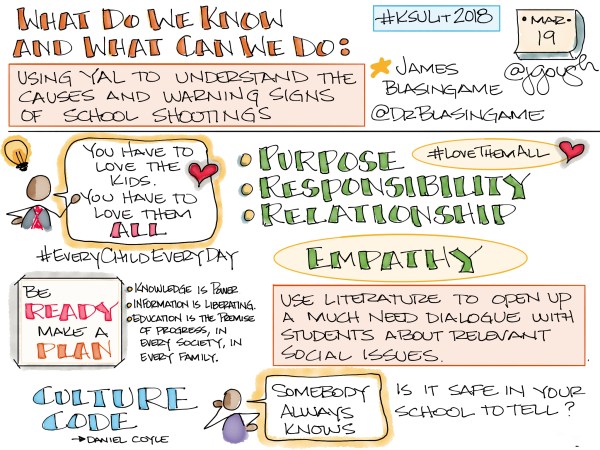 WHAT DO WE KNOW
AND WHAT CAN WE DO:
USING YAL TO UNDERSTAND THE
CAUSES AND WARNING SIGNS
OF SCHOOL SHOOTINGS
#KSULIT2018
MAR.
19
@jgough
JAMES
BLASINGAME
@DRBLASINGAME
YOU HAVE TO
LOVE THE
KIDS.
YOU HAVE TO
LOVE THEM
ALL
#EVERYCHILDEVERYDAY
PURPOSE
RESPONSIBILITY
RELATIONSHIP
#LOVETHEMALL
EMPATHY
BE
READY
MAKE A
PLAN
KNOWLEDGE IS POWER
INFORMATION IS LIBERATING.
EDUCATION IS THE PREMISE
OF PROGRESS, IN
EVERY SOCIETY, IN
EVERY FAMILY.
USE LITERATURE TO OPEN UP
A MUCH NEED DIALOGUE WITH
STUDENTS ABOUT RELEVANT
SOCIAL ISSUES.
CULTURE
CODE
→DANIEL COYLE
SOMEBODY
ALWAYS
KNOWS
IS IT SAFE IN YOUR
SCHOOL TO TELL?